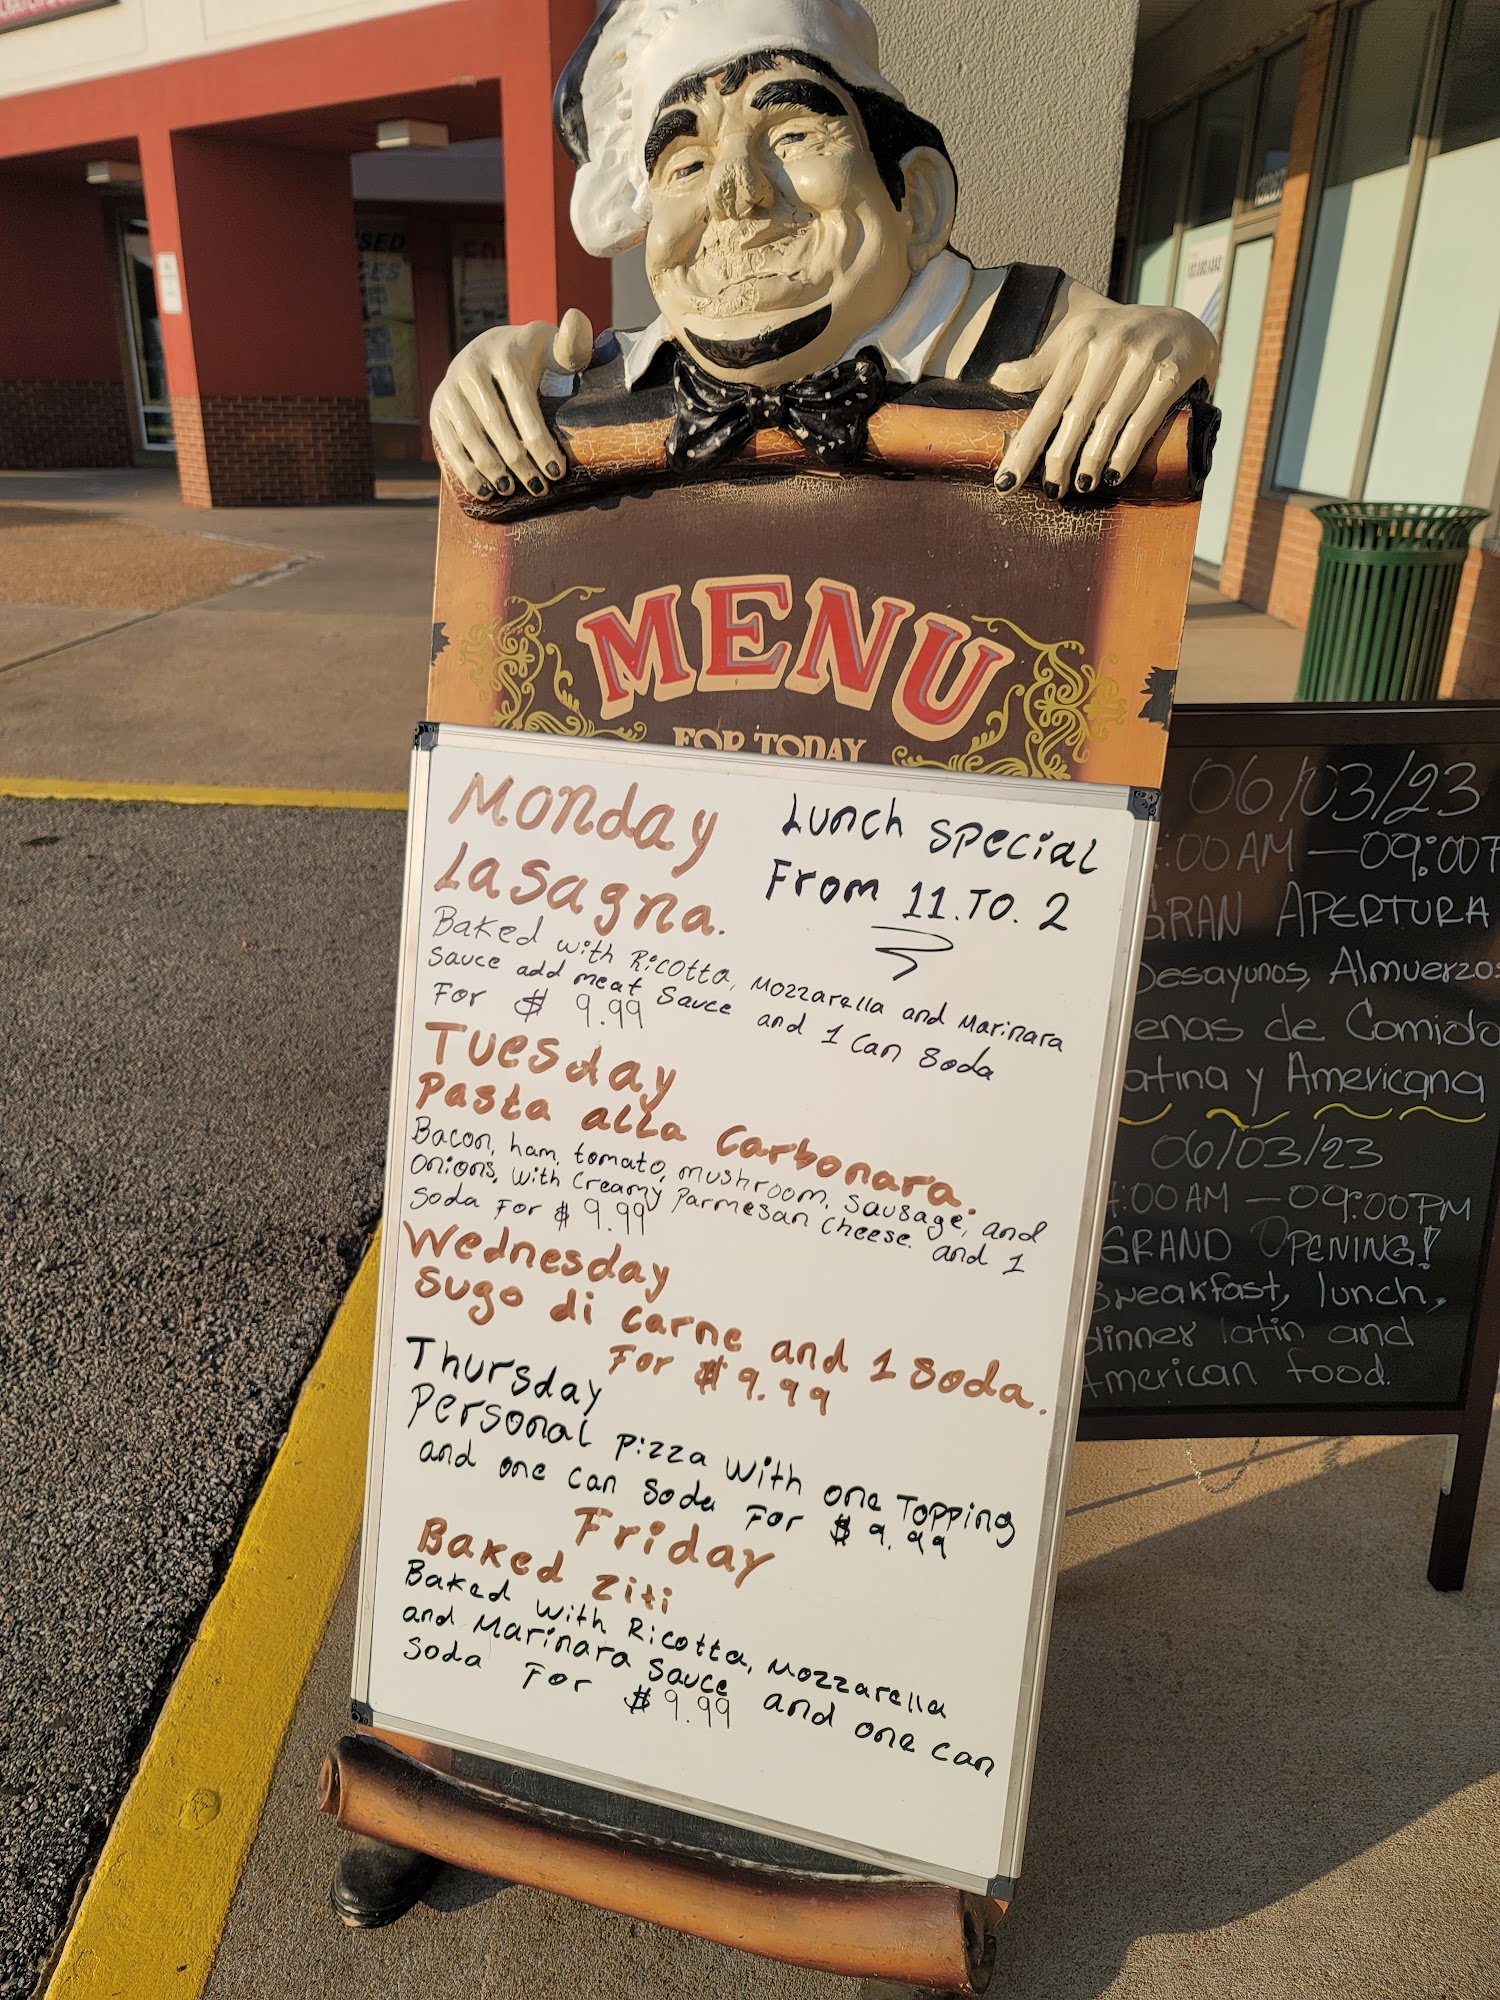 MENU
FOR TODAY
Monday
Lasagna.
Lunch special
From 11.To.2
Baked with Ricotta, Mozzarella and Marinara
sauce add meat sauce and 1 can soda
For $ 9.99
Tuesday
Pasta alla carbonara.
Bacon, ham, tomato, mushroom, sausage, and
onions, with creamy Parmesan cheese. and 1
soda For $ 9.99
Wednesday
Sugo di carne and 1 soda.
For $ 9.99
Thursday
Personal pizza with one Topping
and one can soda For $ 9.99
Friday
Baked Ziti
Baked with Ricotta, Mozzarella
and Marinara sauce and one can
soda For $ 9.99
06/03/23
:00AM — 09:00P
GRAN APERTURA
Desayunos, Almuerzos
enas de Comida
atina y Americana
06/03/23
:00AM — 09:00PM
GRAND OPENING!
Breakfast, lunch,
dinner latin and
American food.